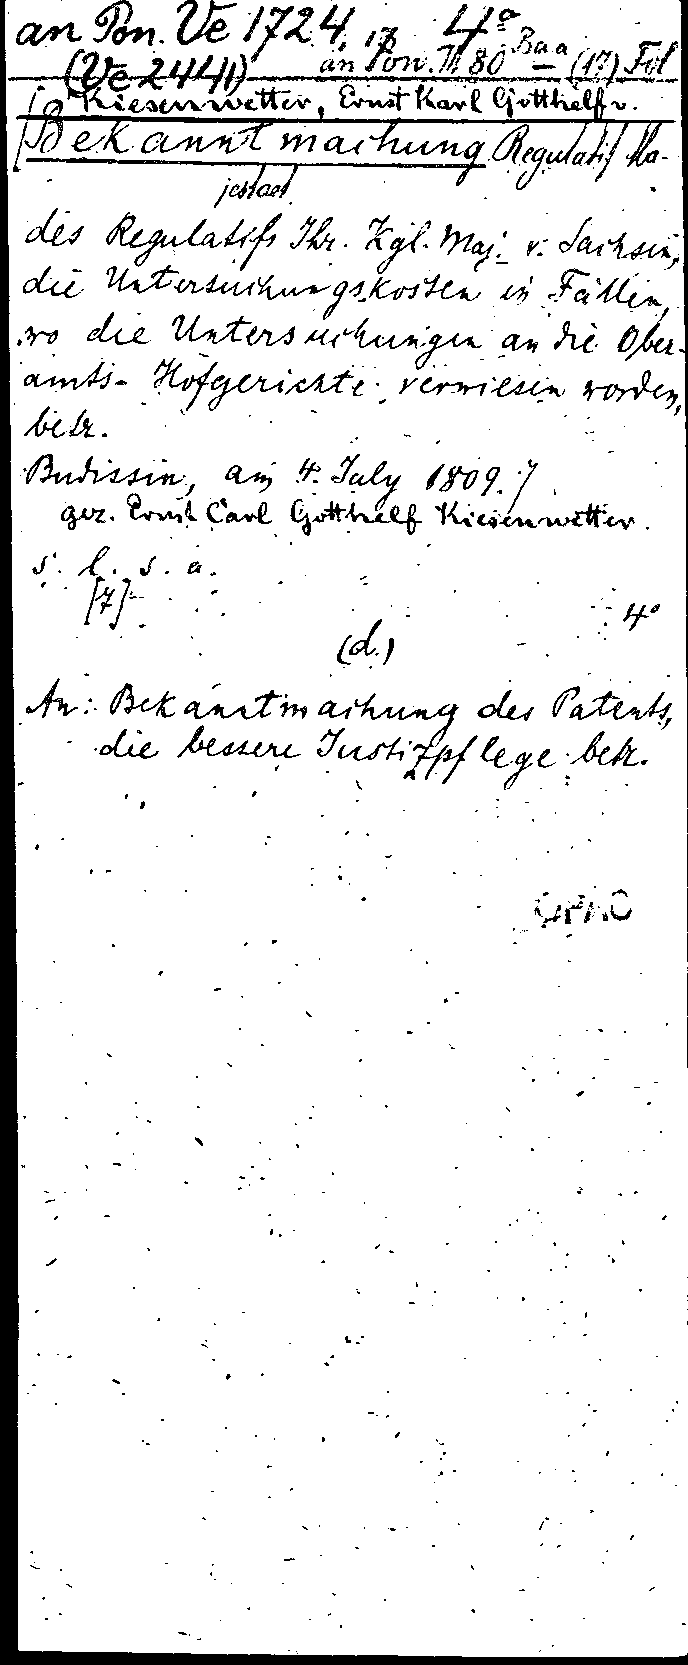 an Pon. Ve 1724, 17 4°
(Ve 2441) an Pon. 80 Baa (17) Fol
Kiesenwetter, Ernst Karl Gotthelf v.
[Bekanntmachung Regulatif Ma-
jestaet
des Regulatifs Ihr. Kgl. Maj. v. Sachsen,
die Untersuchungskosten in Fällen,
wo die Untersuchungen an die Ober-
amts- Hofgerichte verwiesen worden,
betr.
Budissin, am 4. July 1809.]
gez. Ernst Carl Gotthelf Kiesenwetter.
s. l. s. a.
[7] 4°
(d.)
An: Bekanntmachung des Patents,
die bessere Justizpflege betr.
OPAC